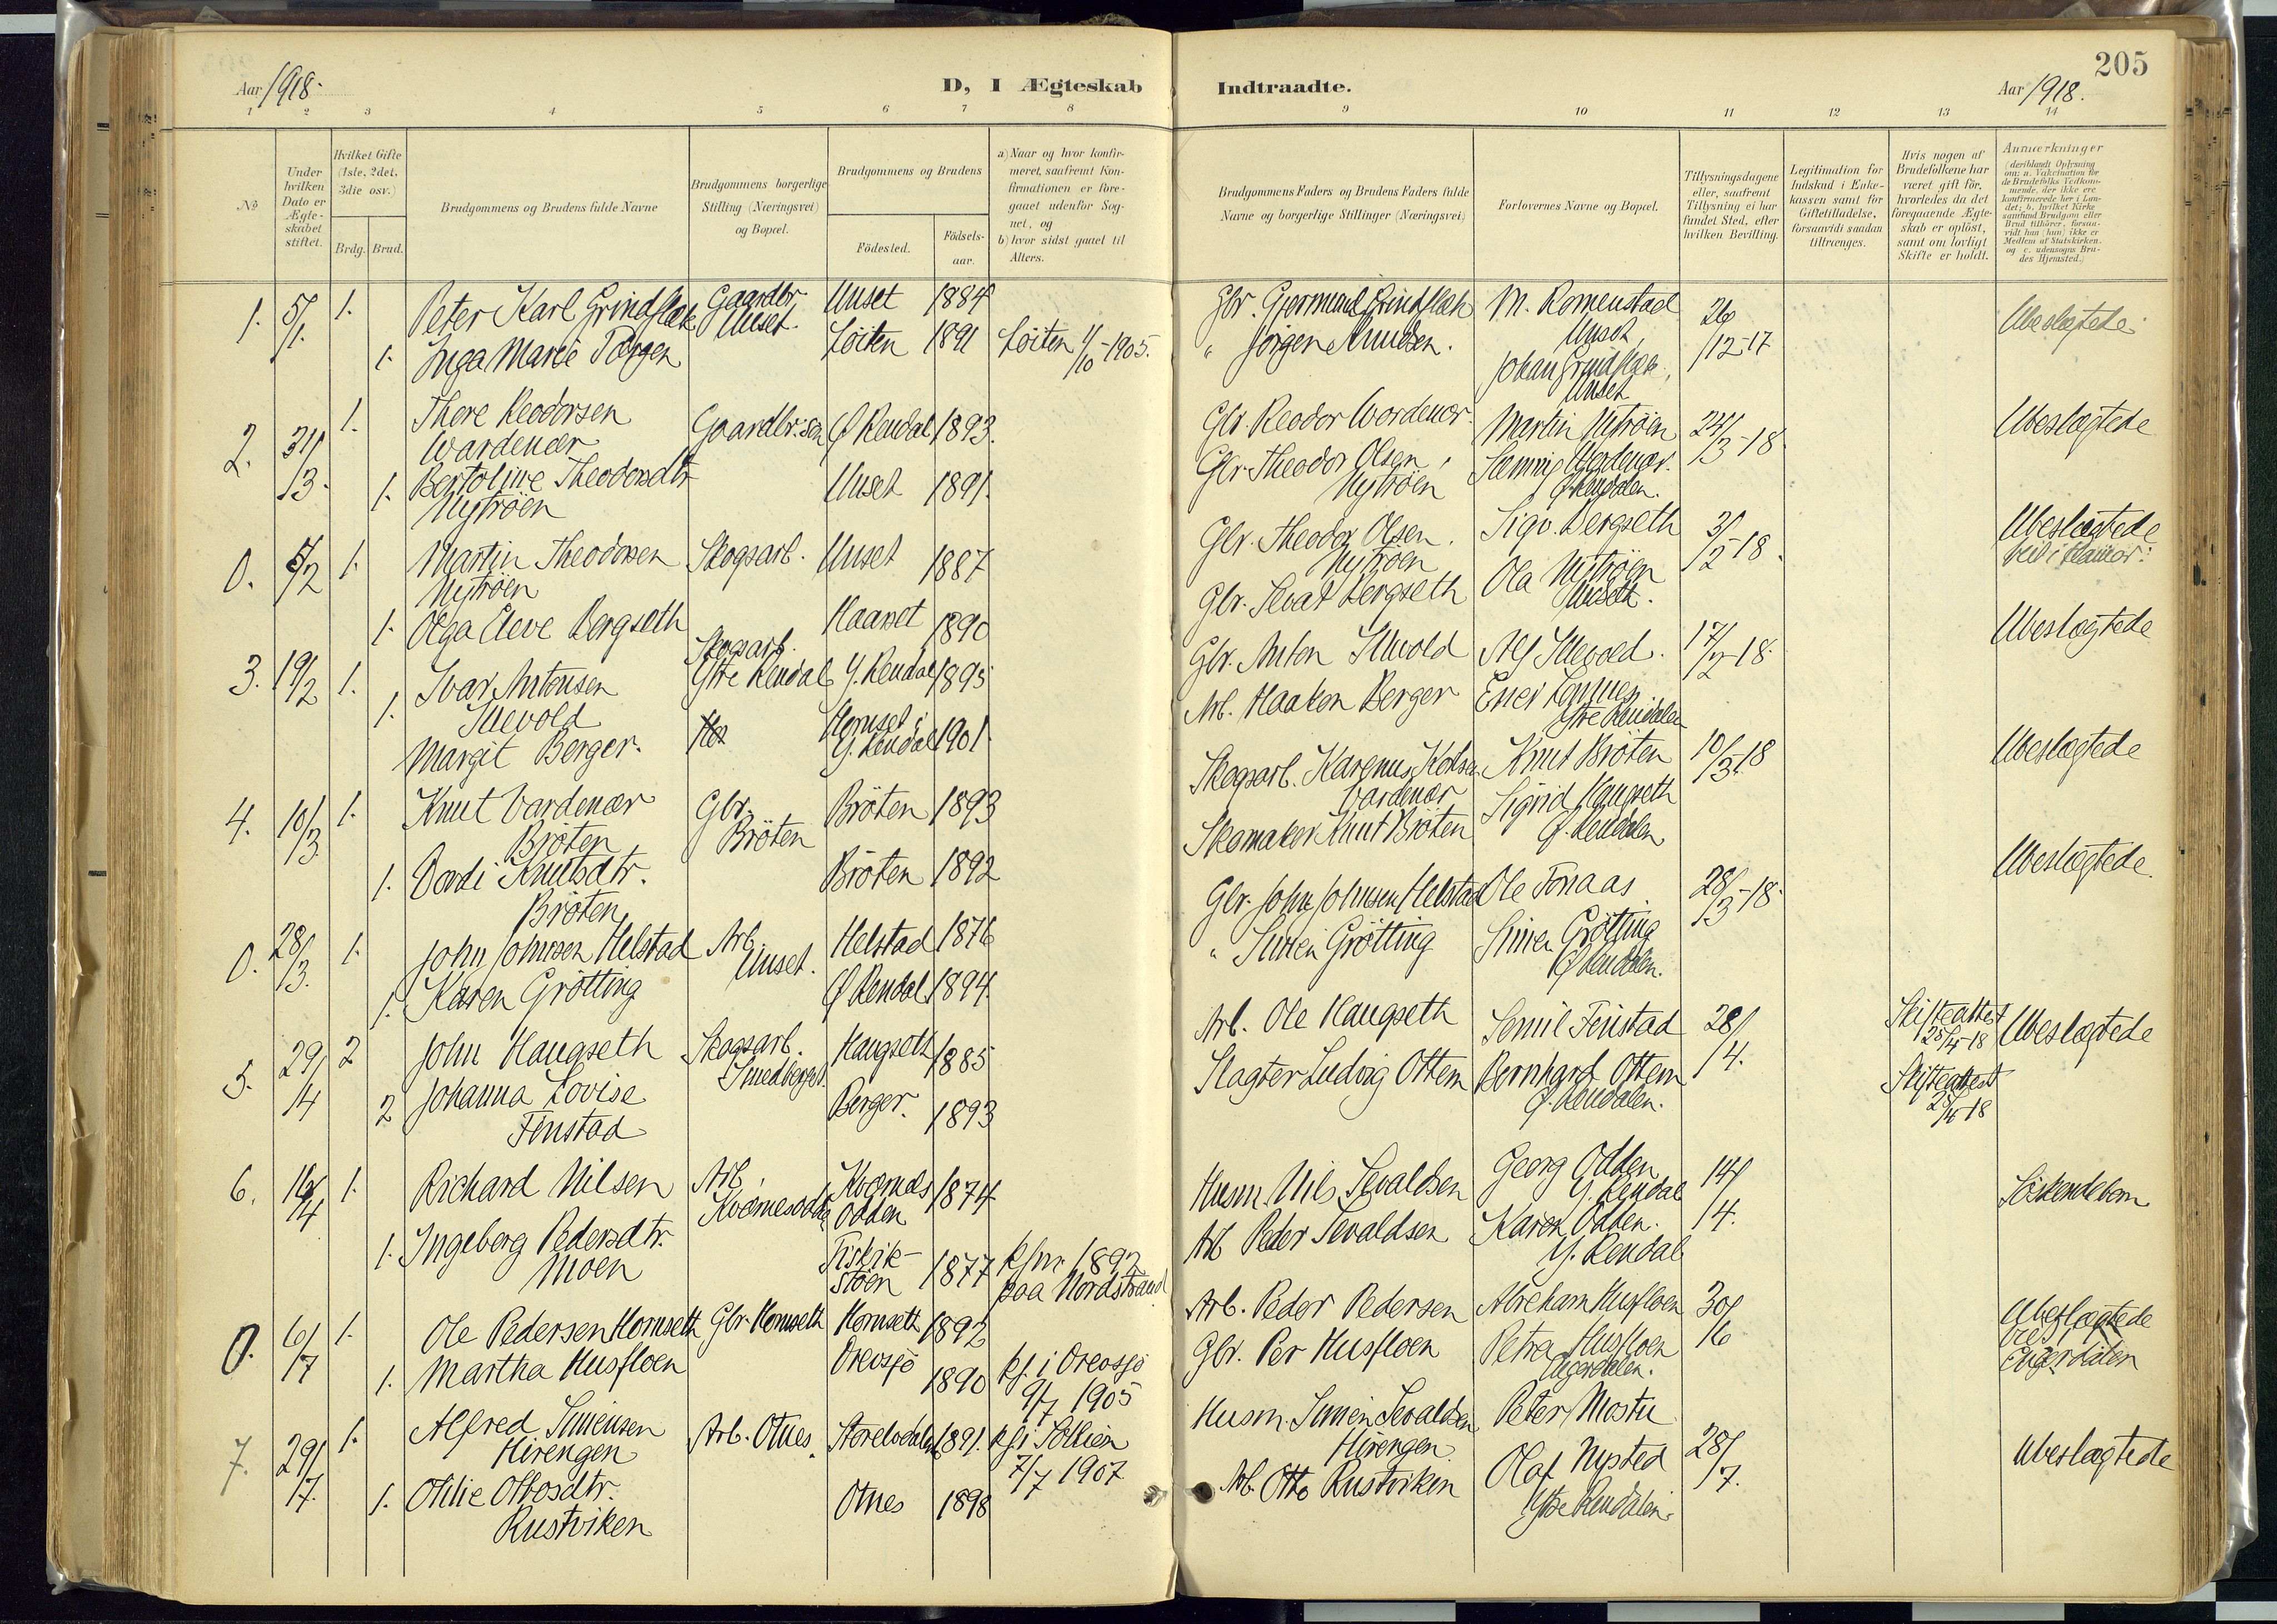 205
Aar 1918.
D, I Ægteskab Indtraadte.
Aar 1918.
1 2 3 4 5 6 7 8 9 10 11 12 13 14
No.
Under hvilken Dato er Ægteskabet stiftet.
Hvilket Gifte (1ste, 2det, 3die osv.)
Brdg. Brud.
Brudgommens og Brudens fulde Navne
Brudgommens borgerlige Stilling (Næringsvei) og Bopæl.
Brudgommens og Brudens
Födested.
Födsels-aar.
a) Naar og hvor konfirmeret, saafremt Konfirmationen er foregaaet udenfor Sognet, og
b) hvor sidst gaaet til Alters.
Brudgommens Faders og Brudens Faders fulde Navne og borgerlige Stillinger (Næringsvei)
Forlovernes Navne og Bopæl.
Tillysningsdagene eller, saafremt Tillysning ei har fundet Sted, efter hvilken Bevilling.
Legitimation for Indskud i Enkekassen samt for Giftetilladelse, forsaavidt saadan tiltrænges.
Hvis nogen af Brudefolkene har været gift för, hvorledes da det foregaaende Ægteskab er oplöst, samt om lovligt Skifte er holdt.
Anmærkninger (deriblandt Oplysning om: a. Vakcination for de Brudefolks Vedkommende, der ikke ere konfirmerede her i Landet; b. hvilket Kirkesamfund Brudgom eller Brud tilhörer, forsaavidt han (hun) ikke er Medlem af Statskirken, og c. udensogns Brudes Hjemsted.)
1. 5/1. 1. Peter Karl Grindflæk Gaardbr. Unset. Unset 1884 Gbr. Gjermund Grindflæk M. Romenstad Unset, 26/12-17 Ubeslægtede
1. Inga Marie Törgen Löiten 1891 Löiten 1/10-1905. " Jörgen Knudsen. Johan Grindflæk, Unset
2. 31/3. 1. Thore Reodorsen Wardenær Gaardbr. sön Ø Rendal 1893. Gbr. Reodor Wordenær Martin Nytröen 24/3-18 Ubeslægtede
1. Bertoline Theodorsdtr Nytröen Unset 1891. Gbr. Theodor Olsen, Nytröen Ø Rendalen.
0. 5/2 1. Martin Theodorsen Nytröen Skogsarb. Unset 1887 Gbr. Theodor Olsen. Nytröen Sigv. Bergseth 3/2-18. Ubeslægtede
1. Olga Eleve Bergseth Haaset 1890 Gbr. Sevat Bergseth Ola Nytröen Unseth.
3. 19/2 1. Ivar Antonsen Illevold Skogsarb. Ytre Rendal Y. Rendal 1895 Gbr. Anton Illevold Alf Illevold. 17/2-18. Ubeslægtede
1. Margit Berger. Hornset i Y. Rendal 1901. Arb. Haakon Berger Ytre Rendalen
4. 10/3. 1. Knut Vardenær Bröten Gbr. Bröten Bröten 1893 Skogsarb. Karenus Vardenær Knut Bröten 10/3-18 Ubeslægtede
1. Dordi Knutsdtr. Bröten Bröten 1892 Skomaker Knut Bröten Sigrid Haugseth Ø. Rendalen
0. 28/3. 1. John Johnsen Helstad Arb. Unset. Helstad 1876 Gbr. John Johnsen Helstad Ole Tonaas 28/3-18. Ubeslægtede.
1. Karen Grötting Ø Rendal 1894. " Simen Grötting Simen Grötting Ø Rendalen.
5. 29/4 2 John Haugseth Skogsarb. Haugseth 1885 Arb. Ole Haugseth Finstad 28/4. Skifteattest 28/4-18 Ubeslægtede
2 Johanna Lovise Finstad Berger. 1893 Slagter Ludvig Ottem Bernhard Ottem Ø. Rendalen. Skifteattest 28/4-18
6. 16/4 1. Richard Nilsen Arb. Kværnesodden Kværnesodden 1874 Husm. Nils Sevaldsen Georg Odden Y. Rendal 14/4. Söskendebarn
1. Ingeborg Pedersdtr. Moen Fiskvikstöen 1877 kfm. 1892 paa Nordstrand Arb Peder Sevaldsen Karen Odden. Y. Rendal
0. 6/7 1. Ole Pedersen Hornseth Gbr. Hornseth Hornseth 1892 Arb. Peder Pedersen Abraham Husfloen 30/6 Ubeslægtede
1. Martha Husfloen Drevsjö 1890 kf. i Drevsjö 9/7 1905 Gbr. Per Husfloen Petra Husfloen Engerdalen. viet i Engerdalen
7. 29/7. 1. Alfred Simensen Hirengen Arb. Otnes. Storelvdalen 1891. kf i Sollien 7/7 1907 Husm. Simen Sevaldsen Hirengen Peter Mostu 28/7. Ubeslægtede
1. Otilie Ottosdtr. Rustviken Otnes 1898 Arb. Otto Rustviken Olaf Nysted Ytre Rendalen.